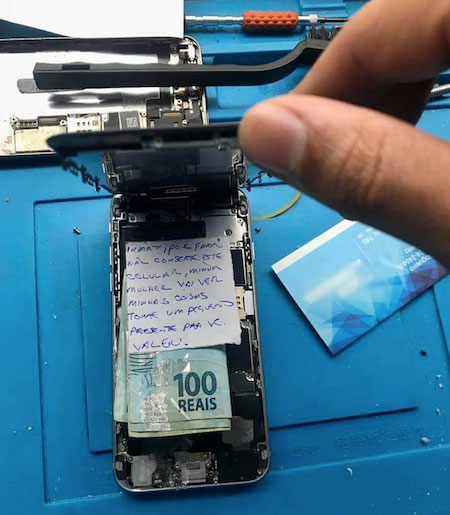 IRMÃO, POR FAVOR
NÃO CONSERTE ESTE
CELULAR, MINHA
MULHER VAI VER
MINHAS COISAS
TOME UM PEQUENO
PRESENTE PRA VC.
VALEU.
100
REAIS